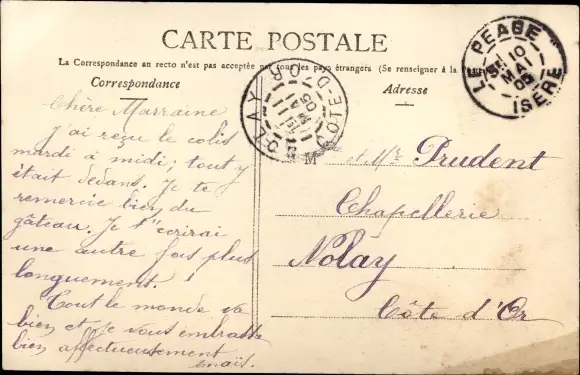 CARTE POSTALE
La Correspondance au recto n'est pas acceptée par tous les pays étrangers (Se renseigner à la
Correspondance
Adresse
LE PEAGE ISÈRE
10 MAI 05
NOLAY COTE-D'OR
11 MAI 05
Chère Marraine
J'ai reçu le colis
mardi à midi; tout y
était dedans. Je te
remercie bien du
gâteau. Je t'écrirai
une autre fois plus
longuement!
Tout le monde va
bien et je vous embrasse
bien affectueusement
M et Mr Prudent
Chapellerie
Nolay
Côte d'Or